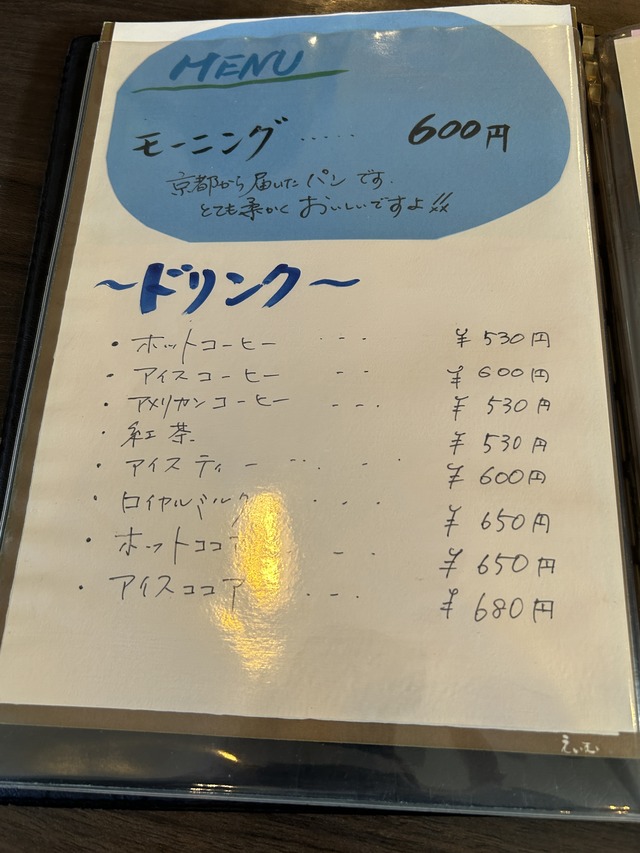 MENU
モーニング ..... 600円
京都から届いたパンです.
とても柔かくおいしいですよ!!
～ドリンク～
・ホットコーヒー --- ¥530円
・アイスコーヒー -- ¥600円
・アメリカンコーヒー --- ¥530円
・紅茶. ¥530円
・アイスティー ---- ¥600円
・ロイヤルミルク --- ¥650円
・ホットココア -- ¥650円
・アイスココア --- ¥680円